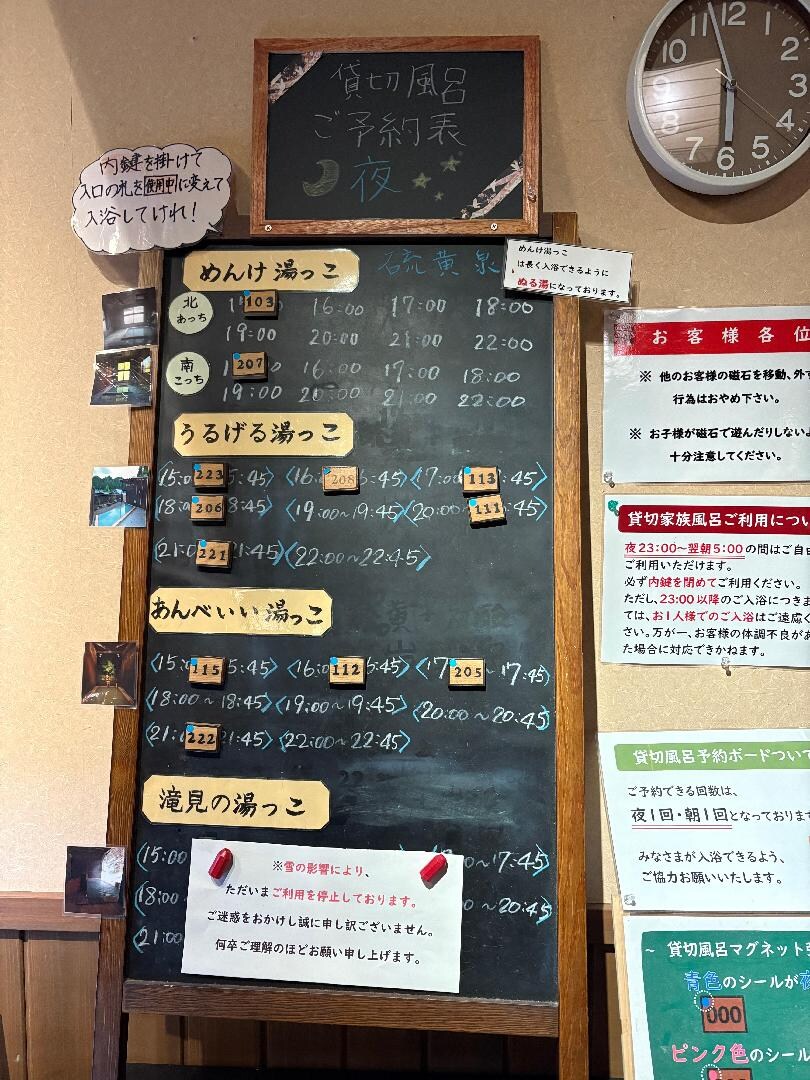 貸切風呂
ご予約表
夜
12
11
10
9
8
7
6
5
4
3
2
内鍵を掛けて
入口の札を使用中に変えて
入浴してけれ!
めんけ湯っこ
硫黄泉
めんけ湯っこ
は長く入浴できるように
ぬる湯になっております。
北
あっち
103 16:00 17:00 18:00
19:00 20:00 21:00 22:00
南
こっち
207 16:00 17:00 18:00
19:00 20:00 21:00 22:00
うるげる湯っこ
〈15:0 223 5:45〉 〈16: 208 5:45〉 〈17:0 113 :45〉
〈18:0 206 8:45〉 〈19:00~19:45〉 〈20:00 111 :45〉
〈21:0 221 1:45〉 〈22:00~22:45〉
あんべいい湯っこ
〈15:0 115 5:45〉 〈16: 112 6:45〉 〈17 205 ~17:45〉
〈18:00~18:45〉 〈19:00~19:45〉 〈20:00~20:45〉
〈21: 222 1:45〉 〈22:00~22:45〉
滝見の湯っこ
〈15:00 0~17:45〉
〈18:00 0~20:45〉
〈21:00
※雪の影響により、
ただいまご利用を停止しております。
ご迷惑をおかけし誠に申し訳ございません。
何卒ご理解のほどお願い申し上げます。
お客様各位
※ 他のお客様の磁石を移動、外す
行為はおやめ下さい。
※ お子様が磁石で遊んだりしないよ
十分注意してください。
貸切家族風呂ご利用につい
夜23:00~翌朝5:00の間はご自由
ご利用いただけます。
必ず内鍵を閉めてご利用ください。
ただし、23:00以降のご入浴につきま
ては、お1人様でのご入浴はご遠慮く
さい。万が一、お客様の体調不良があ
た場合に対応できかねます。
貸切風呂予約ボードついて
ご予約できる回数は、
夜1回・朝1回となっております
みなさまが入浴できるよう、
ご協力お願いいたします。
~ 貸切風呂マグネット
青色のシールが夜
000
ピンク色のシール